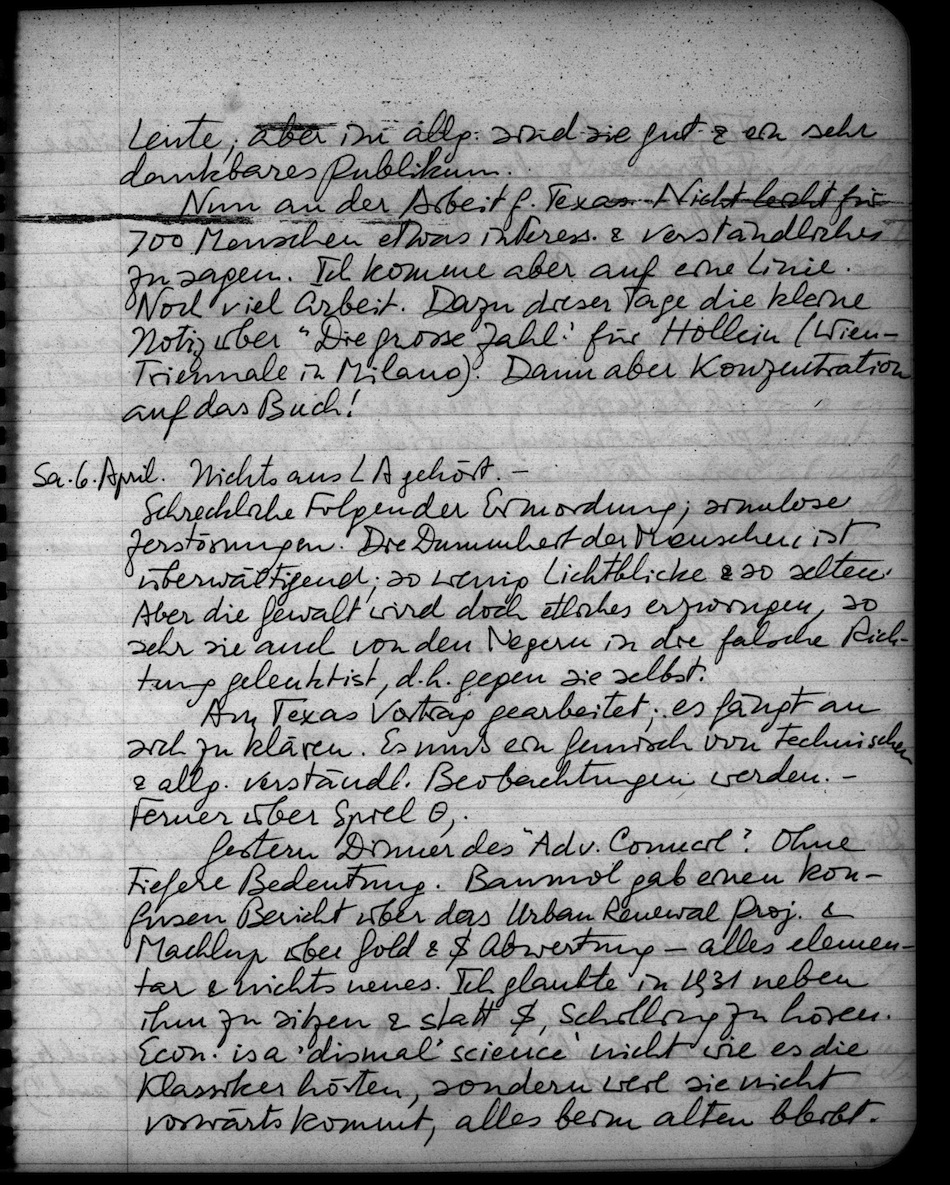 Leute, aber im allg. sind sie gut & ein sehr
dankbares Publikum.
Nun an der Arbeit f. Texas. Nicht leicht für
700 Menschen etwas interess. & verständliches
zu sagen. Ich komme aber auf eine Linie.
Noch viel Arbeit. Dazu dieser Tage die kleine
Notiz über "Die grosse Zahl" für Hollein (Wien-
Triennale in Milano). Dann aber Konzentration
auf das Buch!
Sa. 6. April. Nichts aus LA gehört. –
Schreckliche Folgen der Ermordung; sinnlose
Zerstörungen. Die Dummheit der Menschen ist
überwältigend; so wenig Lichtblicke & so selten.
Aber die Gewalt wird doch etliches erzwingen, so
sehr sie auch von den Negern in die falsche Rich-
tung gelenkt ist, d.h. gegen sie selbst.
Am Texas Vortrag gearbeitet; es fängt an
sich zu klären. Es muss ein Gemisch von technischen
& allg. verständl. Beobachtungen werden. –
Ferner über Spiel Θ,.
Gestern Dinner des "Adv. Council". Ohne
tiefere Bedeutung. Baumol gab einen kon-
fusen Bericht über das Urban Renewal Proj. &
Machlup über Gold & $ Abwertung – alles elemen-
tar & nichts neues. Ich glaubte in 1931 neben
ihm zu sitzen & statt $, Schilling zu hören.
Econ. is a 'dismal' science' nicht wie es die
Klassiker hörten, sondern weil sie nicht
vorwärts kommt, alles beim alten bleibt.